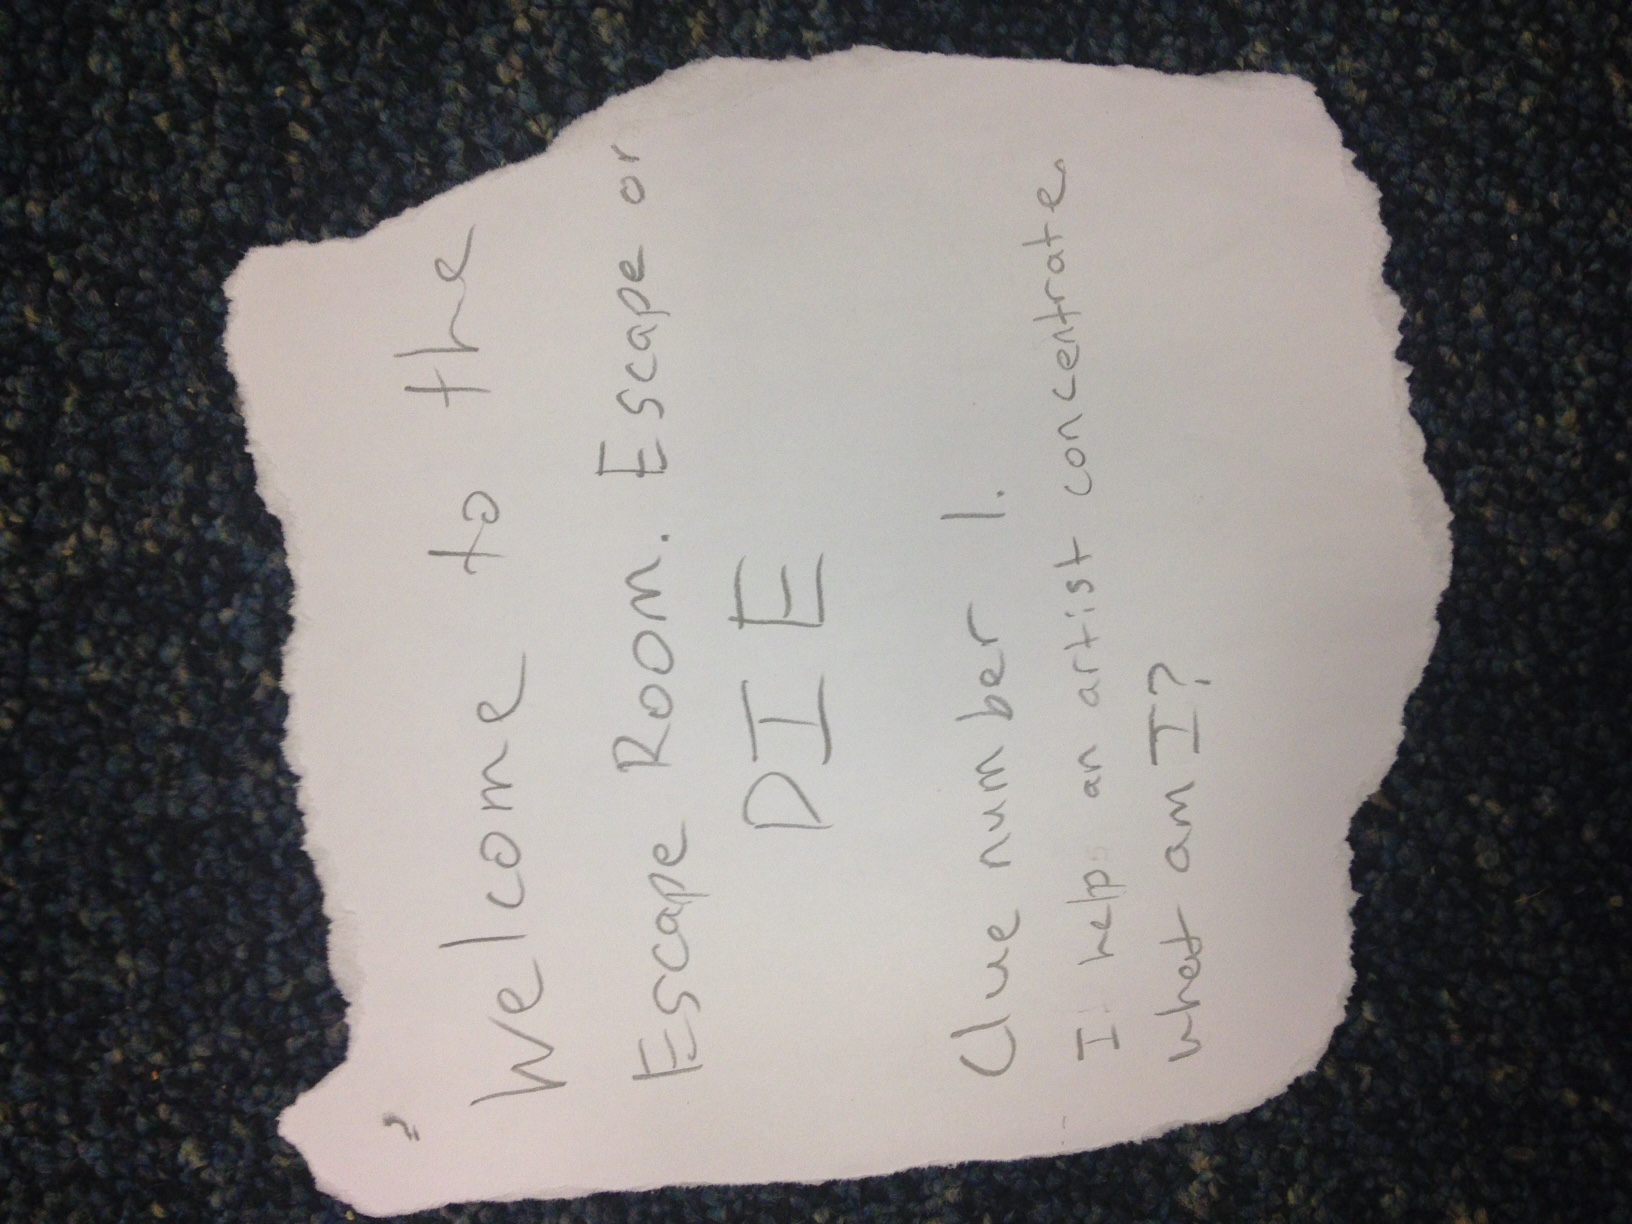 Welcome to the
Escape Room. Escape or
DIE
Clue number 1.
I help an artist concentrate.
what am I?